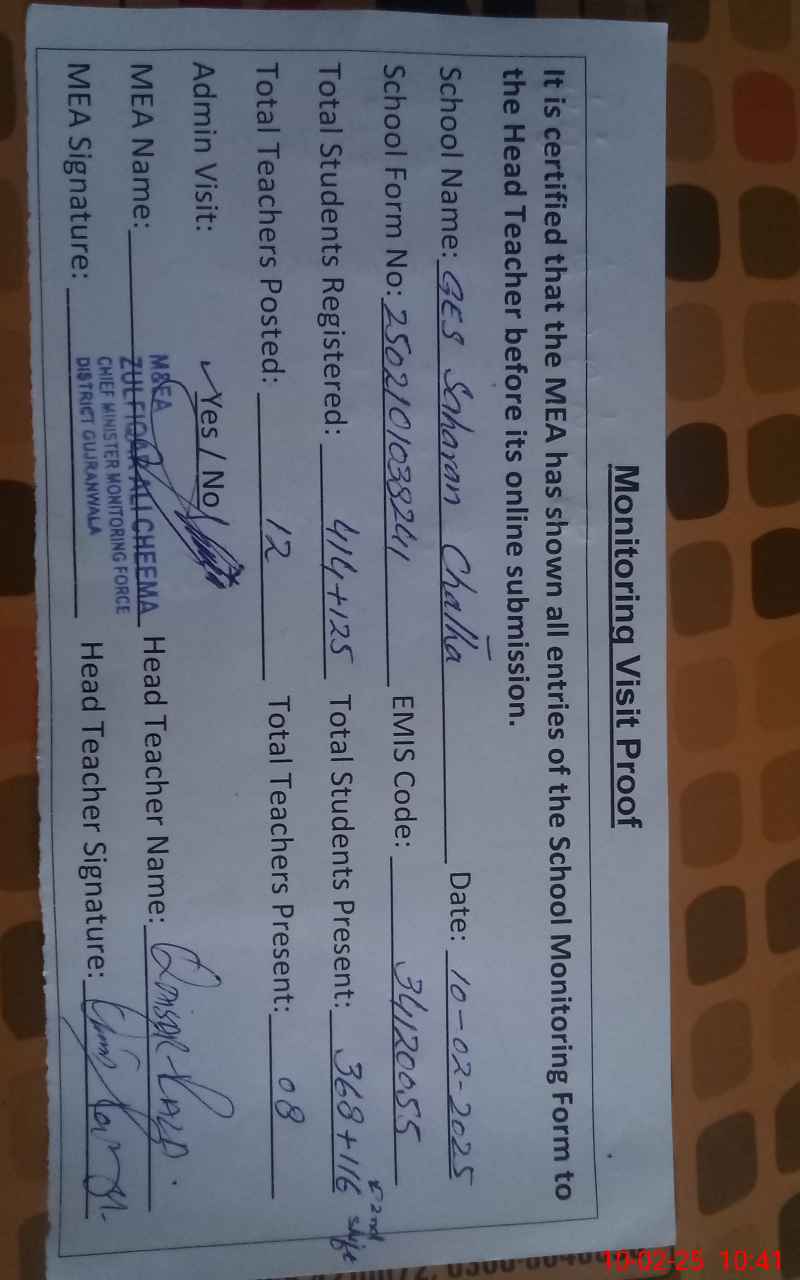 Monitoring Visit Proof
It is certified that the MEA has shown all entries of the School Monitoring Form to
the Head Teacher before its online submission.
School Name: GES Saharan Chatha Date: 10-02-2025
School Form No: 2502101038241 EMIS Code: 34120055
Total Students Registered: 414+125 Total Students Present: 368+116 2nd shift
Total Teachers Posted: 12 Total Teachers Present: 08
Admin Visit: ✓Yes / No
MEA Name: M&EA
ZULFIQAR ALI CHEEMA
CHIEF MINISTER MONITORING FORCE
DISTRICT GUJRANWALA
Head Teacher Name:
MEA Signature: Head Teacher Signature:
10-02-25 10:41